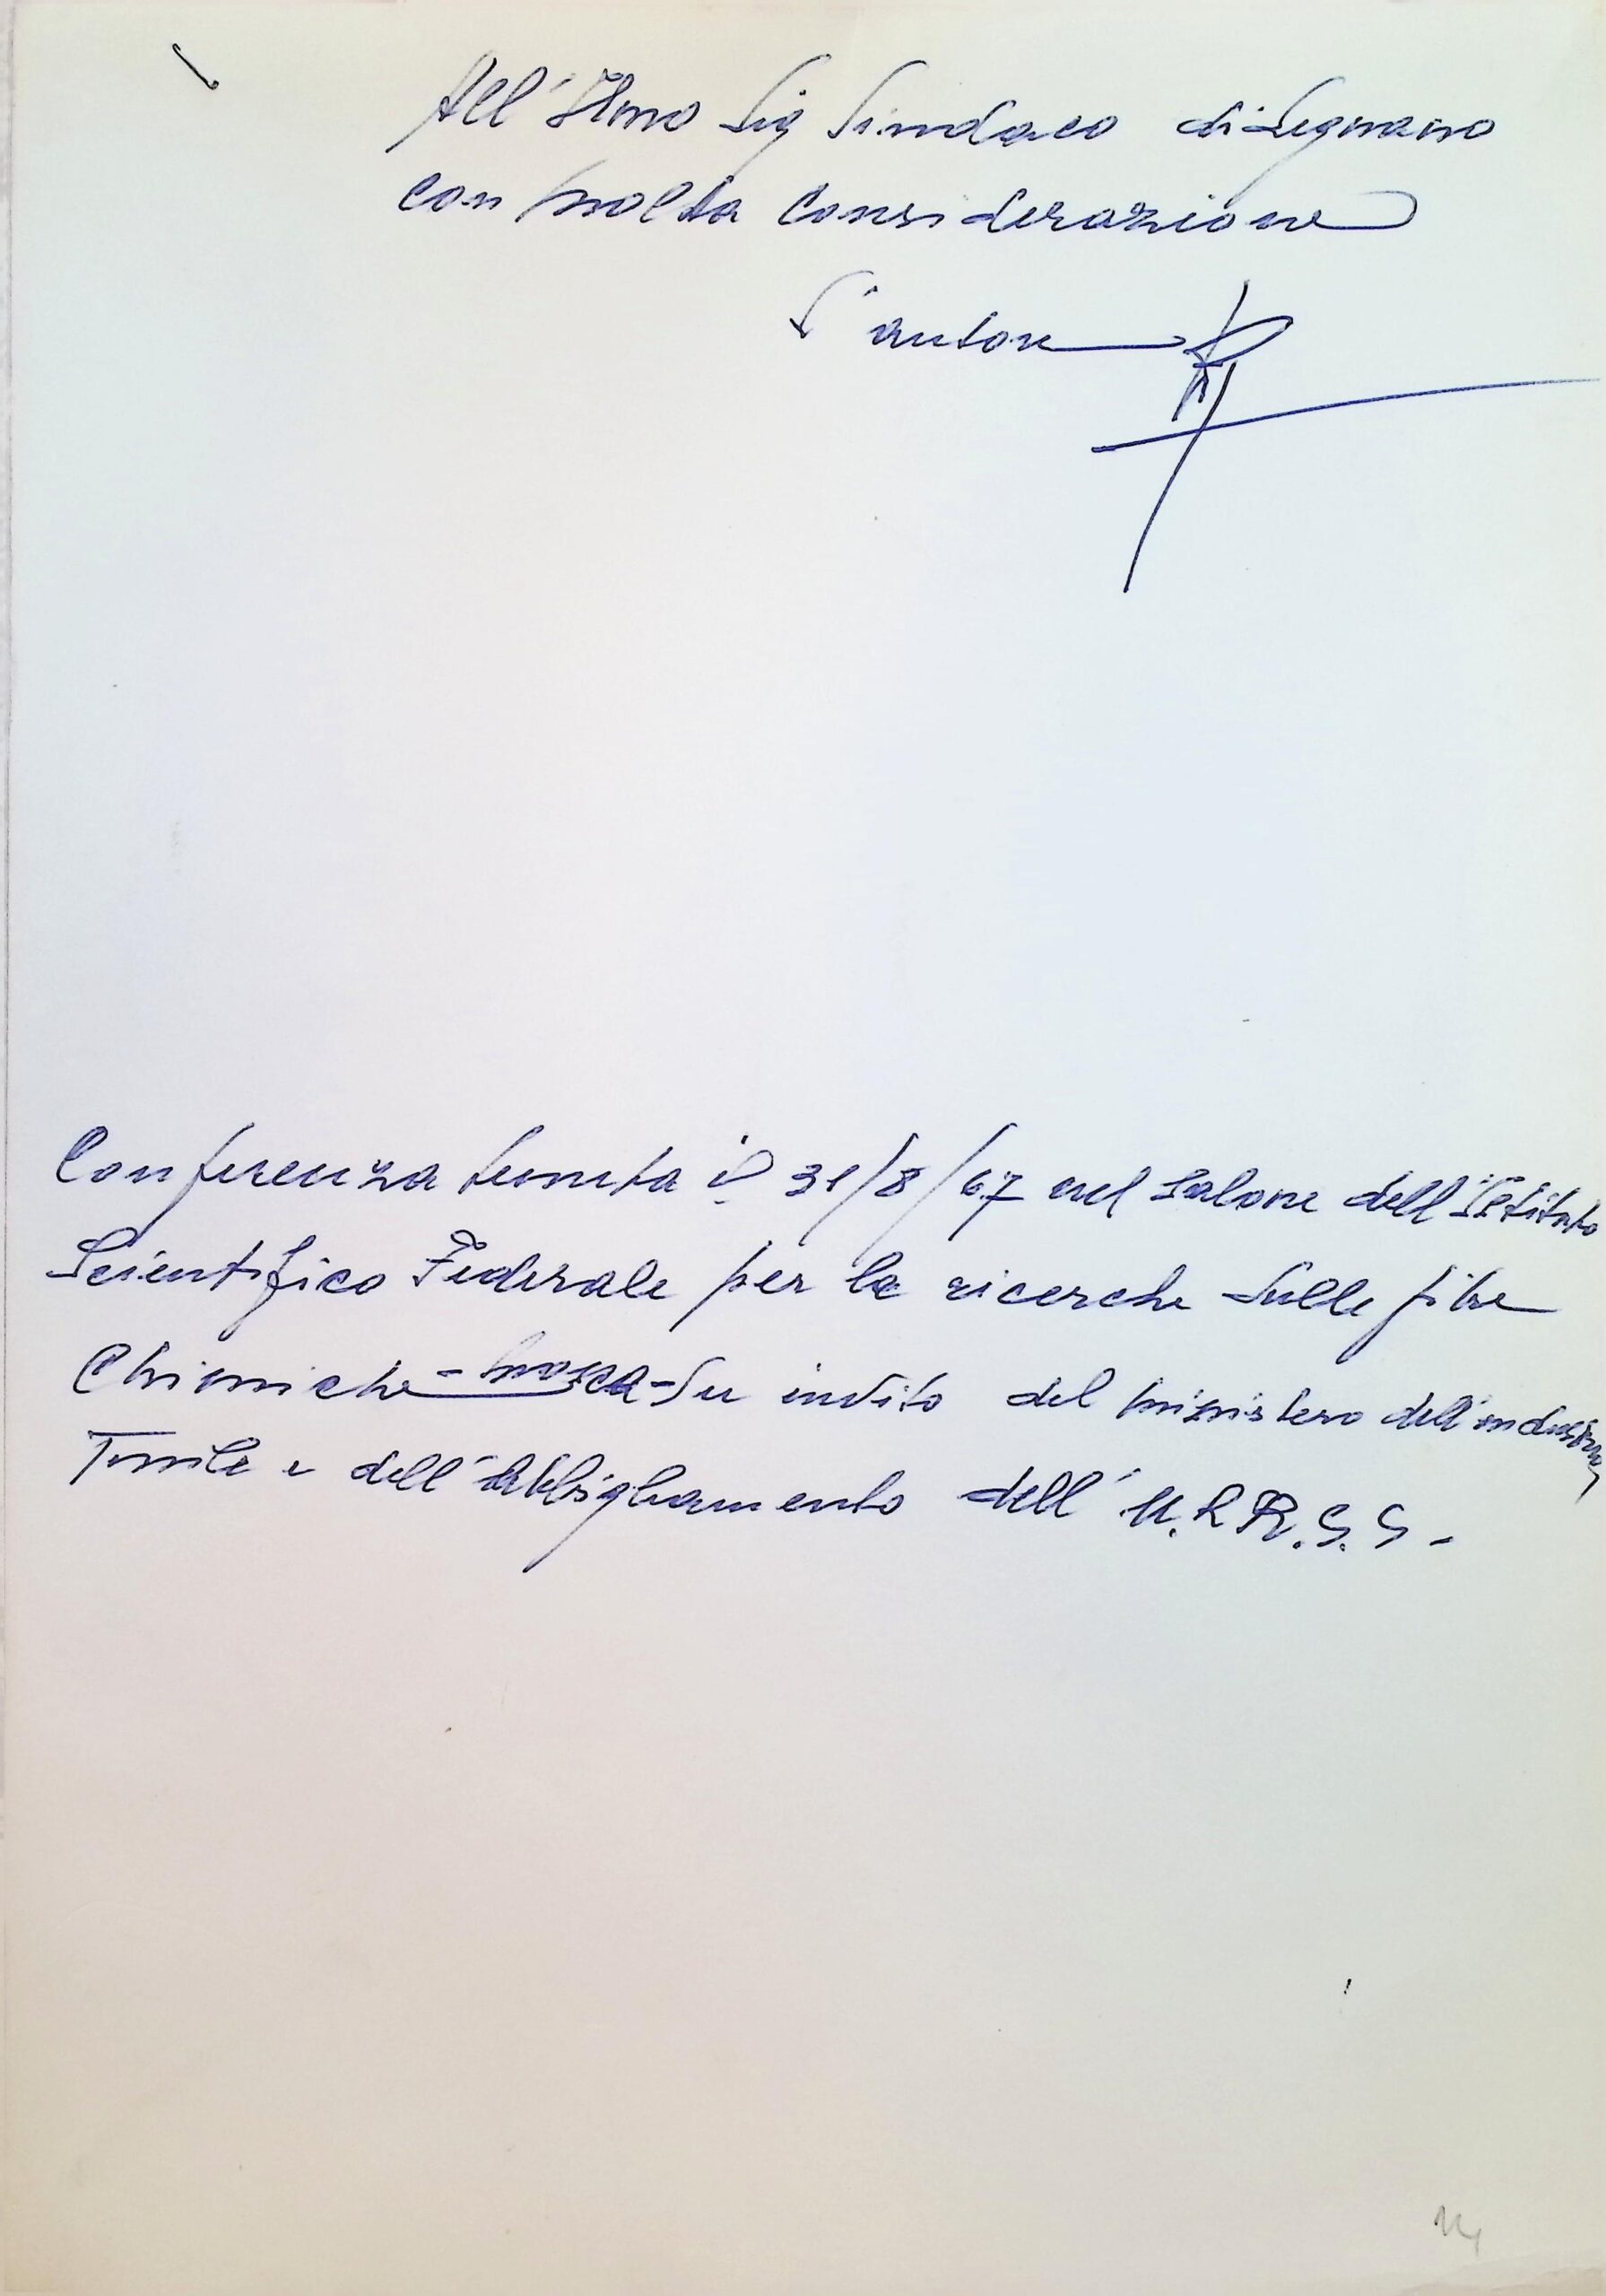 All'Illmo Sig Sindaco di Legnano
con molta considerazione
L'autore
Conferenza tenuta il 31/8/67 nel Salone dell'Istituto
Scientifico Federale per le ricerche sulle fibre
Chimiche - Mosca - Su invito del ministero dell'industria
Tessile e dell'abbigliamento dell' U.R.R.S.S.